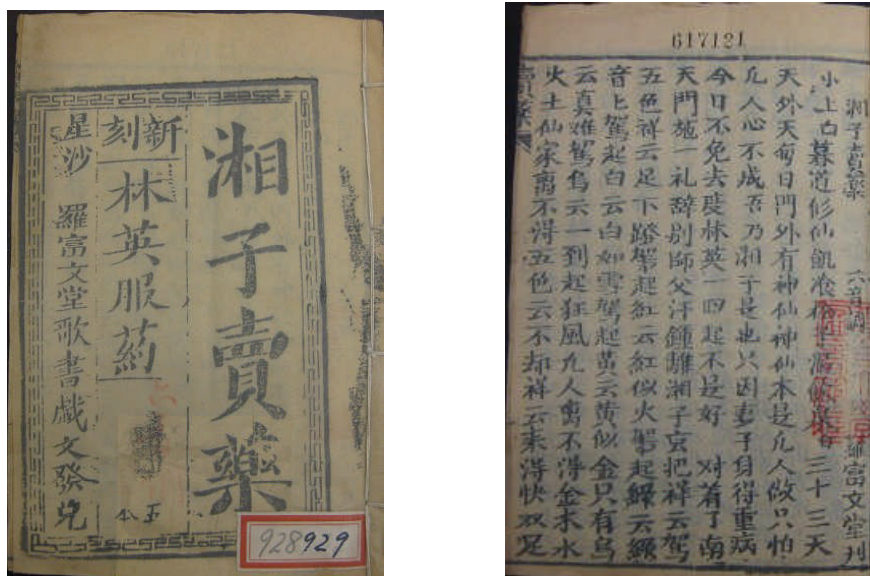 湘子賣藥
新刻
林英服葯
星沙 羅富文堂歌書戲文發兌
928929
617121
湘子賣藥 六音調 羅富文堂刊
小上白暮道修仙飢飡 三十三天
天外天每日門外有神仙神仙本是凡人做只怕
凡人心不成吾乃湘子是也只因妻子身得重病
今日不免去度林英一回起不是好 对着了南
天門施一礼辞別師父汗鍾離湘子京把祥云駕
五色祥云足下蹬駕起紅云紅似火駕起綠云綠
音上駕起白云白如雪駕起黃云黃似金只有烏
云真难駕烏云一到起狂風凡人离不得金木水
火土仙家离不得五色云不却祥云来得快双足
賣藥